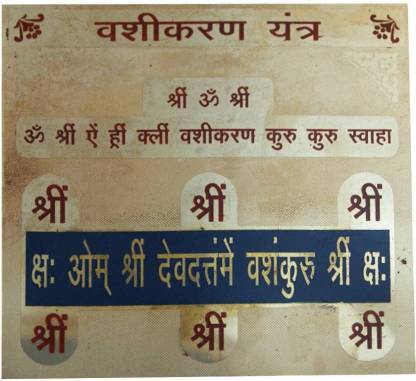 वशीकरण यंत्र
श्रीं ॐ श्रीं
ॐ श्रीं ऐं ह्रीं क्लीं वशीकरण कुरु कुरु स्वाहा
श्रीं श्रीं श्रीं
क्षः ओम् श्रीं देवदत्तंमें वशंकुरु श्रीं क्षः
श्रीं श्रीं श्रीं